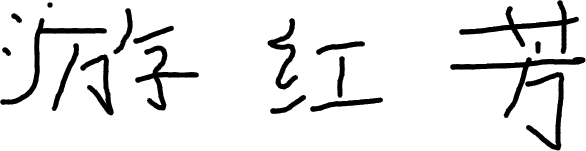 游红芳